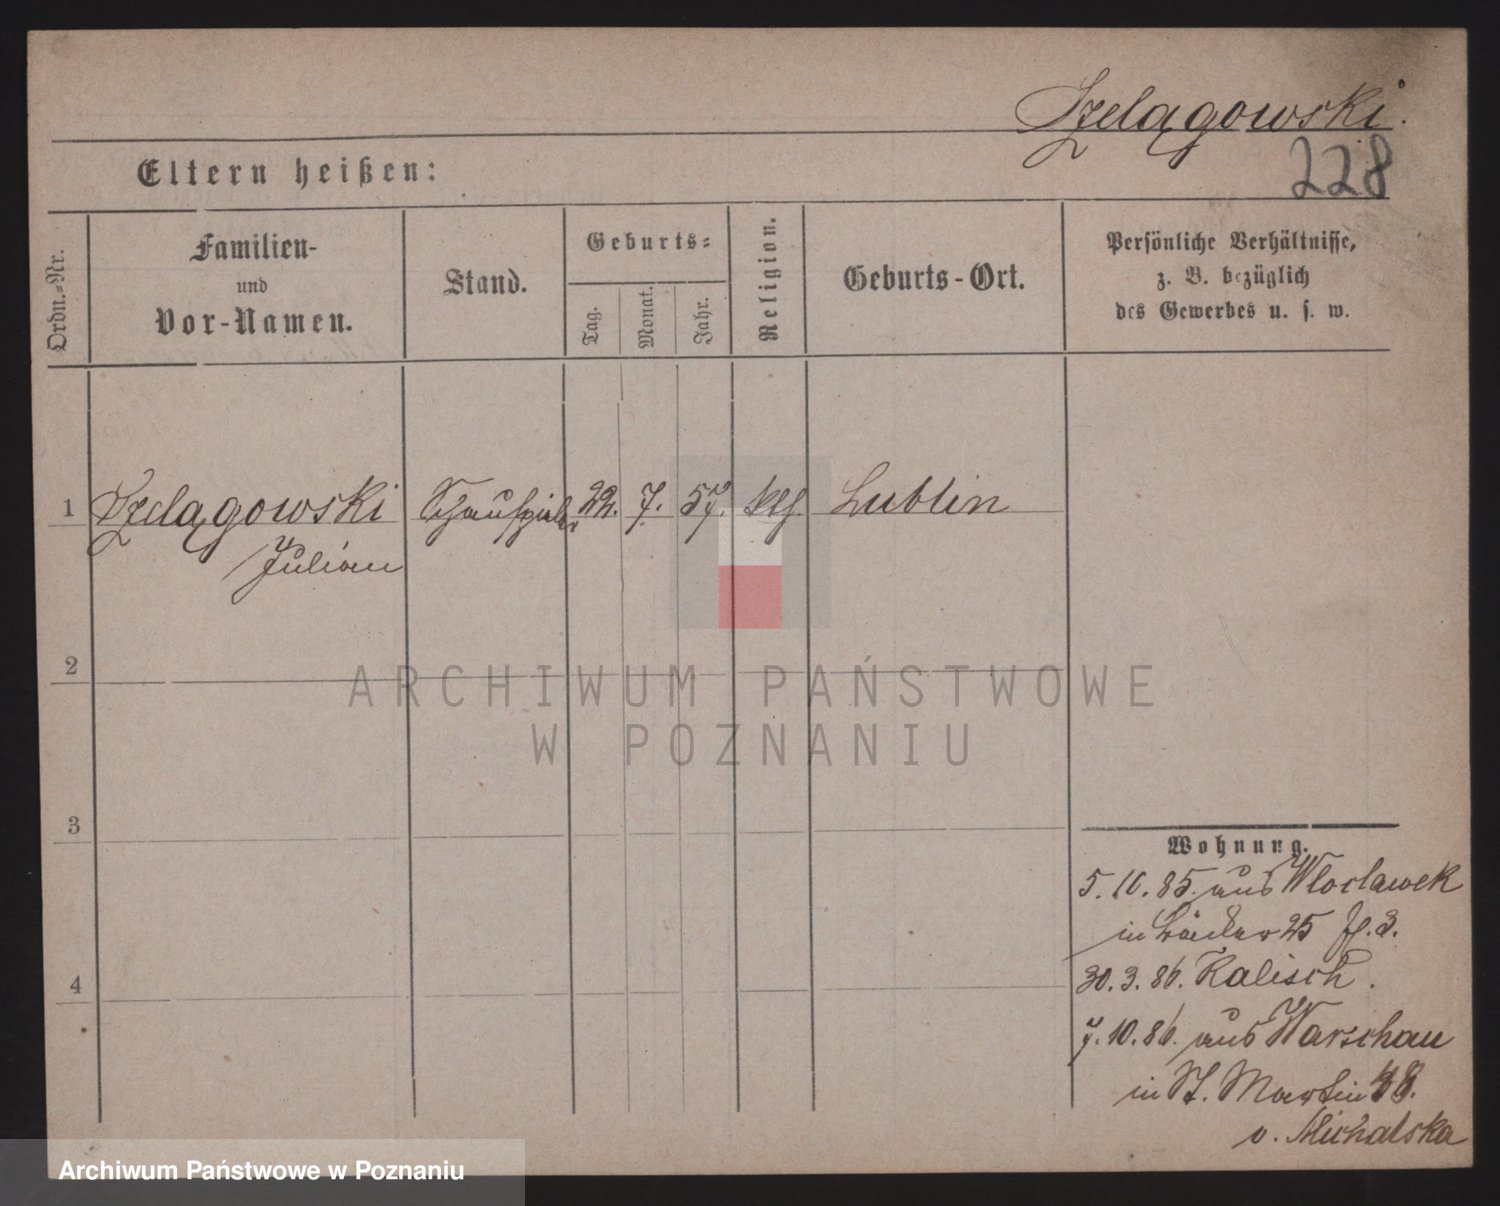 Szelągowski.
228
Eltern heißen:
Ordn.-Nr.
Familien-
und
Vor-Namen.
Stand.
Geburts-
Tag.
Monat.
Jahr.
Religion.
Geburts-Ort.
Persönliche Verhältnisse,
z. B. bezüglich
des Gewerbes u. s. w.
1 Szelągowski Schauspieler 22. 7. 57. kth Lublin
Julian
2
3
4
Wohnung.
5. 10. 85. aus Wloclawek
in Bäcker 25
30. 3. 86. Kalisch.
7. 10. 86. aus Warschau
in St. Martin 48.
v. Michalska
ARCHIWUM PAŃSTWOWE
W POZNANIU
Archiwum Państwowe w Poznaniu